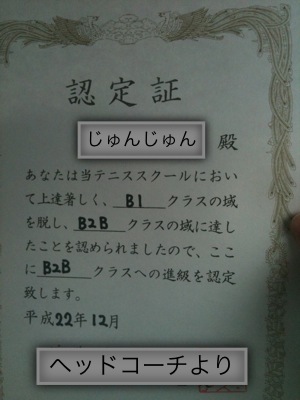 認定証
じゅんじゅん 殿
あなたは当テニススクールにおい
て上達著しく、B1クラスの域
を脱し、B2Bクラスの域に達し
たことを認められましたので、ここ
にB2Bクラスへの進級を認定
致します。
平成22年12月
ヘッドコーチより